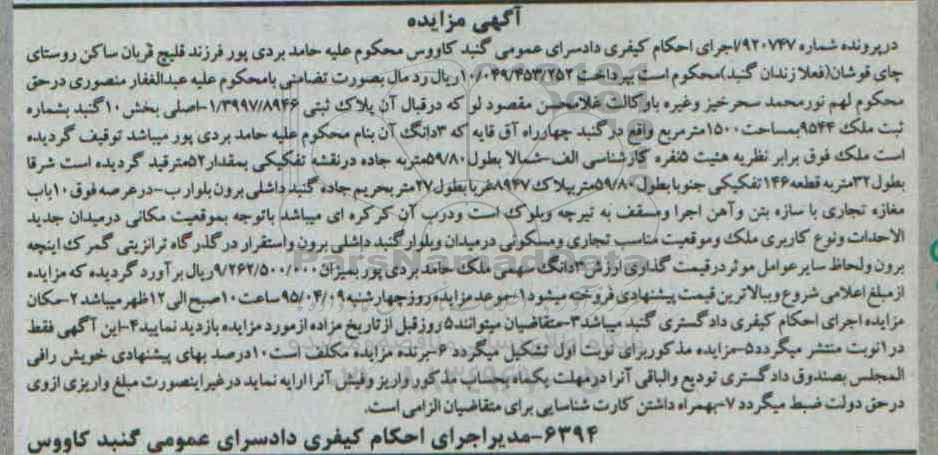 آگهی مزایده
در پرونده شماره ۹۲۰۷۴۷/اجرای احکام کیفری دادسرای عمومی گنبد کاووس محکوم علیه حامد بردی پور فرزند قلیچ قربان ساکن روستای
چای قوشان(فعلا زندان گنبد)محکوم است بپرداخت ۱۰/۰۴۹/۴۵۳/۲۵۲ریال رد مال بصورت تضامنی بامحکوم علیه عبدالغفار منصوری درحق
محکوم لهم نورمحمد سحرخیز وغیره باوکالت غلامحسن مقصود لو که درقبال آن پلاک ثبتی ۱/۳۹۹۷/۸۹۴۶-اصلی بخش ۱۰گنبد بشماره
ثبت ملک ۹۵۴۴بمساحت۱۵۰۰مترمربع واقع درگنبد چهارراه آق قایه که ۳دانگ آن بنام محکوم علیه حامد بردی پور میباشد توقیف گردیده
است ملک فوق برابر نظریه هئیت ۵نفره کارشناسی الف-شمالا بطول۵۹/۸۰متربه جاده درنقشه تفکیکی بمقدار۵۲مترقید گردیده است شرقا
بطول۳۲متربه قطعه۱۴۶تفکیکی جنوبا بطول۵۹/۸۰متربپلاک۸۹۴۷غربا بطول۲۷متربحریم جاده گنبد داشلی برون بلوار ب-درعرصه فوق ۱۰باب
مغازه تجاری با سازه بتن وآهن اجرا ومسقف به تیرچه وبلوک است ودرب آن کرکره ای میباشد باتوجه بموقعیت مکانی درمیدان جدید
الاحداث ونوع کاربری ملک وموقعیت مناسب تجاری ومسکونی درمیدان وبلوار گنبد داشلی برون واستقرار درگذرگاه ترانزیتی گمرک اینچه
برون ولحاظ سایر عوامل موثر درقیمت گذاری ارزش ۳دانگ سهمی ملک حامد بردی پور بمیزان ۹/۲۶۲/۵۰۰/۰۰۰ریال برآورد گردیده که مزایده
ازمبلغ اعلامی شروع وببالاترین قیمت پیشنهادی فروخته میشود ۱-موعد مزایده روزچهارشنبه ۹۵/۰۴/۰۹ساعت ۱۰صبح الی ۱۲ظهر میباشد ۲-مکان
مزایده اجرای احکام کیفری دادگستری گنبد میباشد۳-متقاضیان میتوانند۵روزقبل ازتاریخ مزاده ازمورد مزایده بازدید نمایید۴-این آگهی فقط
در۱نوبت منتشر میگردد۵-مزایده مذکور برای نوبت اول تشکیل میگردد ۶-برنده مزایده مکلف است۱۰درصد بهای پیشنهادی خویش رافی
المجلس بصندوق دادگستری تودیع والباقی آنرا درمهلت یکماه بحساب مذکور واریز وفیش آنرا ارایه نماید درغیر اینصورت مبلغ واریزی ازوی
درحق دولت ضبط میگردد ۷-بهمراه داشتن کارت شناسایی برای متقاضیان الزامی است.
۶۳۹۴-مدیر اجرای احکام کیفری دادسرای عمومی گنبد کاووس
ParsNamadData